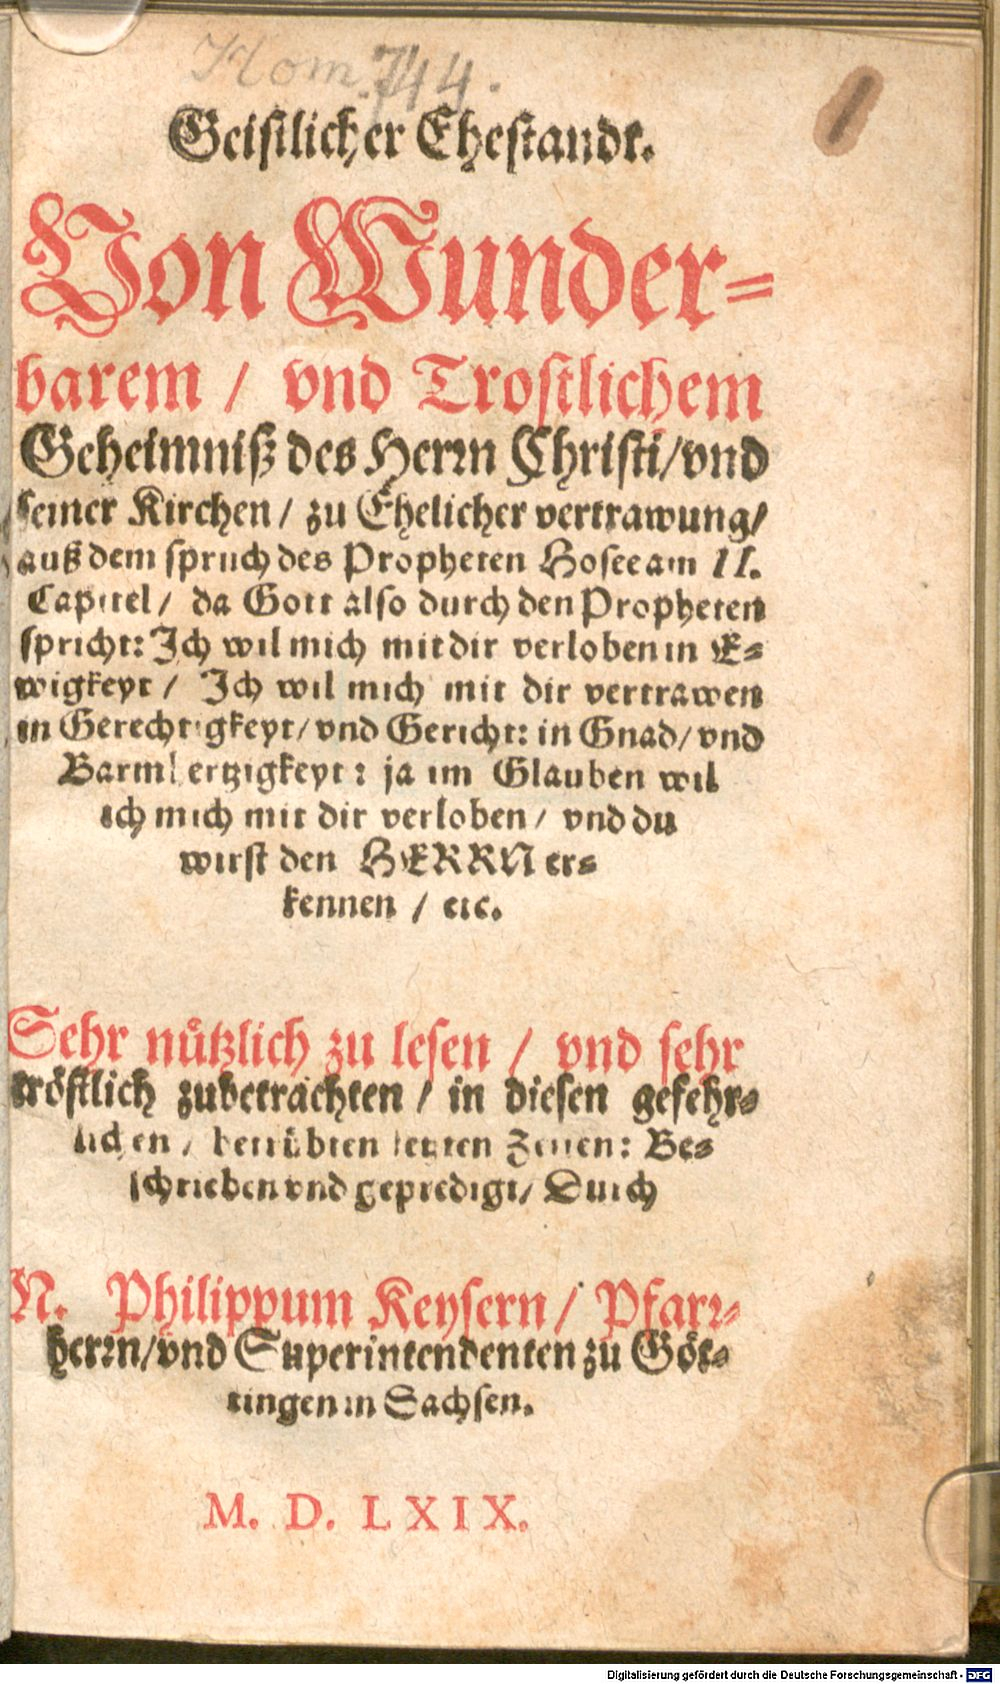 Hom. 744.
1
Geistlicher Ehestandt.
Von Wunder-
barem / vnd Trostlichem
Geheimniß des Herrn Christi / vnd
seiner Kirchen / zu Ehelicher vertrawung /
auß dem spruch des Propheten Hosee am II.
Capitel / da Gott also durch den Propheten
spricht: Ich wil mich mit dir verloben in E-
wigkeyt / Ich wil mich mit dir vertrawen
in Gerechtigkeyt / vnd Gericht: in Gnad / vnd
Barmhertzigkeyt: ja im Glauben wil
ich mich mit dir verloben / vnd du
wirst den HERRN er-
kennen / etc.
Sehr nützlich zu lesen / vnd sehr
tröstlich zubetrachten / in diesen gefehr-
lichen / betrübten letzten Zeiten: Be-
schrieben vnd gepredigt / Durch
N. Philippum Keysern / Pfarr-
herrn / vnd Superintendenten zu Göt-
tingen in Sachsen.
M. D. LXIX.
Digitalisierung gefördert durch die Deutsche Forschungsgemeinschaft - DFG